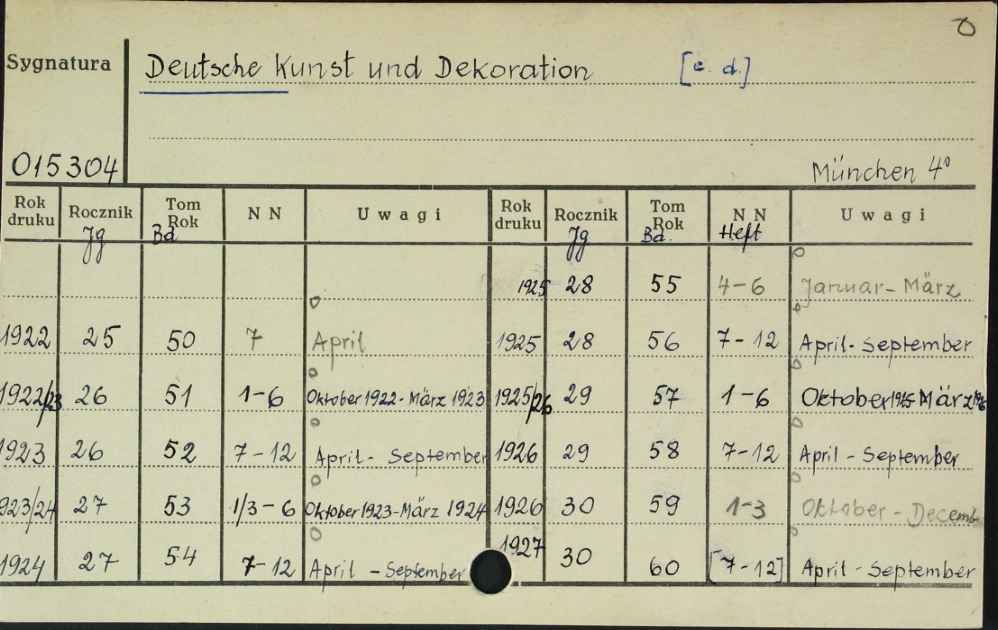 Sygnatura Deutsche Kunst und Dekoration [c. d.]
015304 München 4°
Rok druku Rocznik Jg Tom Rok Bd NN Uwagi Rok druku Rocznik Jg Tom Rok Bd. NN Heft Uwagi
1925 28 55 4-6 Januar - März
1922 25 50 7 April 1925 28 56 7-12 April - September
1922/23 26 51 1-6 Oktober 1922 - März 1923 1925/26 29 57 1-6 Oktober 1925 März 1926
1923 26 52 7-12 April - September 1926 29 58 7-12 April - September
923/24 27 53 1/3-6 Oktober 1923 - März 1924 1926 30 59 1-3 Oktober - Decemb
1924 27 54 7-12 April - September 1927 30 60 [7-12] April - September